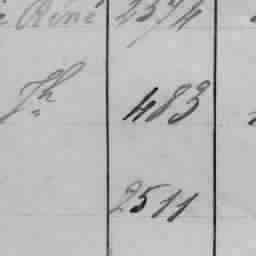 René 2374
Jh 483
2511